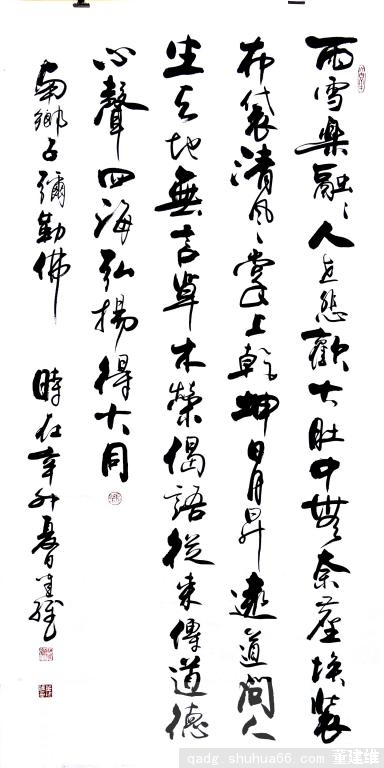 雨雪樂融〻人世悲歡大肚中無奈塵埃裝
布袋清風〻掌上乾坤日月昇遠道問人
生天地無言草木榮偈語從來傳道德
心聲四海弘揚得大同
南鄉子彌勒佛 時在辛卯夏日建維
qadg.shuhua66.com 董建维